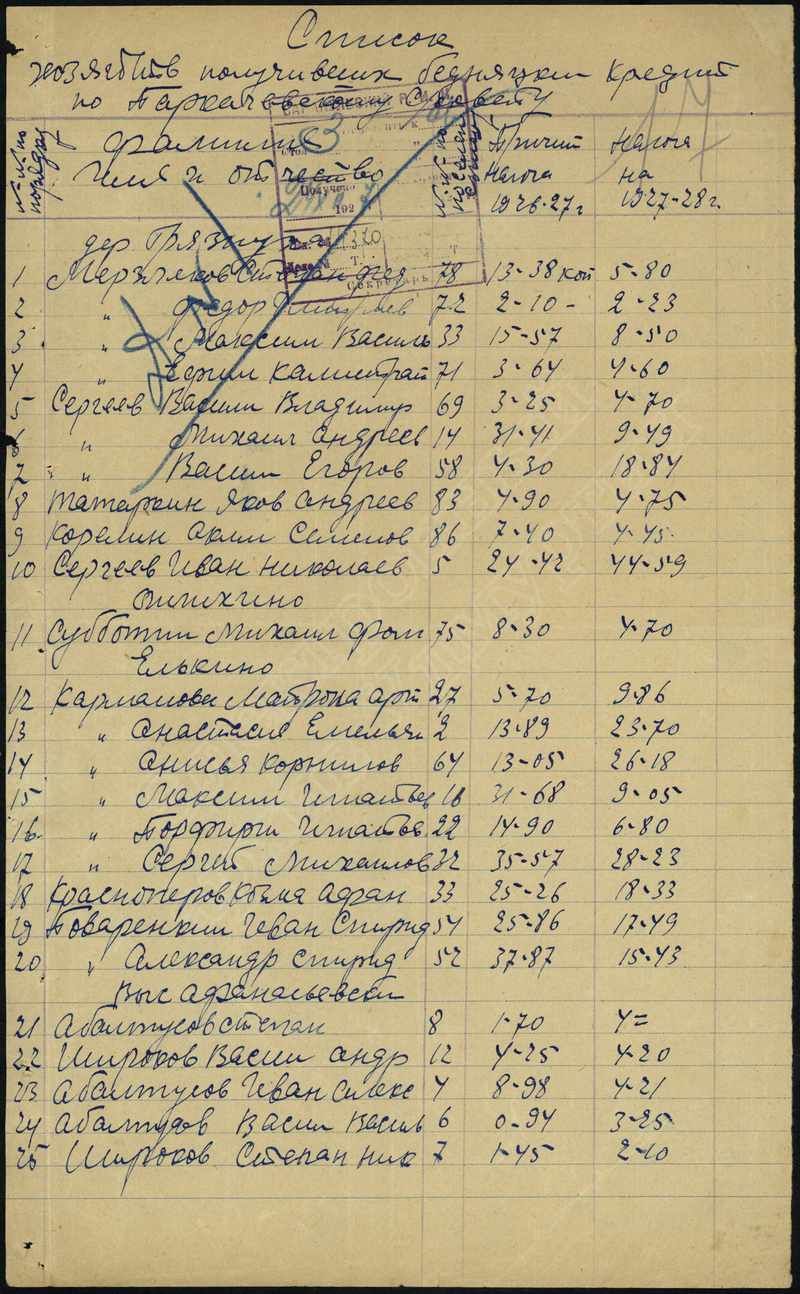 Список
хозяйств получивших бедняцкий кредит
по Паркачевскому С Совету
№ № по порядку
фамилия
Имя и отчество
№ № по
Причит Налога 1926-27 г
Налога на 1927-28 г.
Получено
192
Секретарь
дер. Грязнуха
1 Мерзляков Степан Фед 78 13-38 коп 5-80
2 " Федор 72 2-10- 2-23
3 " Максим Василь 33 15-57 8-50
4 " Ефрем Калистрат 71 3-64 4-60
5 Сергеев Васили Владимир 69 3-25 4-70
6 " Михаил Андреев 14 31-41 9-49
7 " Васили Егоров 58 4-30 18-84
8 Татаркин Яков Андреев 83 4-90 4-75
9 Корелин Аким Семенов 86 7-40 4-45
10 Сергеев Иван Николаев 5 24-42 44-59
11 Субботин Михаил Фом 75 8-30 4-70
Елькино
12 Карманова Матрона Арт 27 5-70 9-86
13 " Анастасия Емельян 2 13-89 23-70
14 " Анисья Корнилов 64 13-05 26-18
15 " Максим Игнатьев 16 31-68 9-05
16 " Порфири Игнатьев 22 14-90 6-80
17 " Сергей Михаилов 32 35-57 28-23
18 Красноперов Козма Афан 33 25-26 18-33
19 Поваренкин Иван Спирид 54 25-86 17-49
20 " Александр Спирид 52 37-87 15-43
Выс Афанасьевски
21 Абалтусов Степан 8 1-70 4=
22 Широков Васили Андр 12 4-25 4-20
23 Абалтусов Иван Алекс 4 8-98 4-21
24 Абалтусов Васил Василь 6 0-94 3-25
25 Широков Степан Ник 7 1-45 2-10